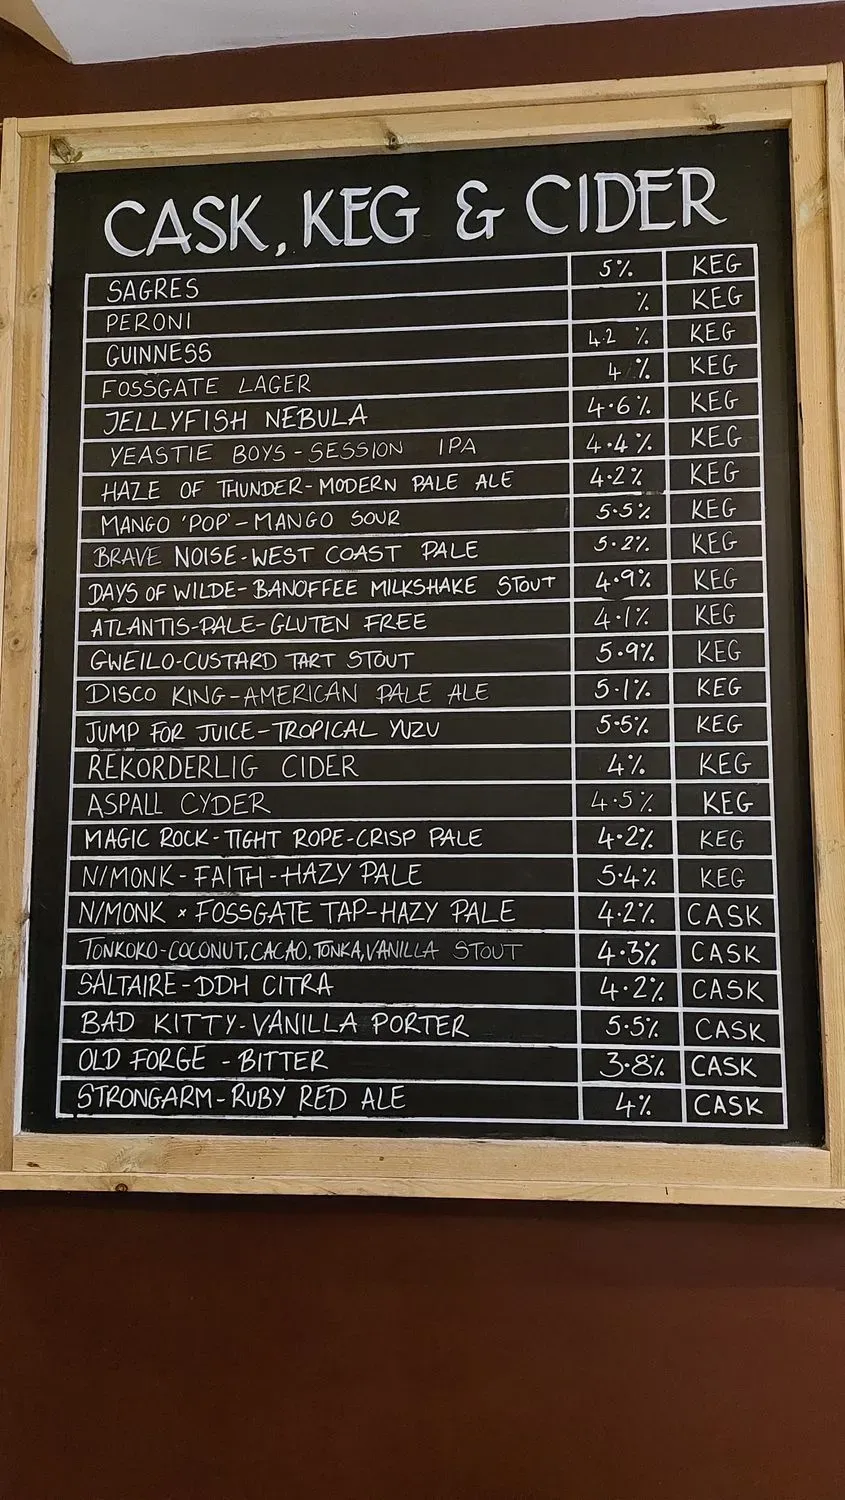 CASK, KEG & CIDER
SAGRES 5% KEG
PERONI % KEG
GUINNESS 4.2 % KEG
FOSSGATE LAGER 4 % KEG
JELLYFISH NEBULA 4.6% KEG
YEASTIE BOYS - SESSION IPA 4.4% KEG
HAZE OF THUNDER - MODERN PALE ALE 4.2% KEG
MANGO 'POP' - MANGO SOUR 5.5% KEG
BRAVE NOISE - WEST COAST PALE 5.2% KEG
DAYS OF WILDE - BANOFFEE MILKSHAKE STOUT 4.9% KEG
ATLANTIS - PALE - GLUTEN FREE 4.1% KEG
GWEILO - CUSTARD TART STOUT 5.9% KEG
DISCO KING - AMERICAN PALE ALE 5.1% KEG
JUMP FOR JUICE - TROPICAL YUZU 5.5% KEG
REKORDERLIG CIDER 4% KEG
ASPALL CYDER 4.5% KEG
MAGIC ROCK - TIGHT ROPE - CRISP PALE 4.2% KEG
N/MONK - FAITH - HAZY PALE 5.4% KEG
N/MONK × FOSSGATE TAP - HAZY PALE 4.2% CASK
TONKOKO - COCONUT, CACAO, TONKA, VANILLA STOUT 4.3% CASK
SALTAIRE - DDH CITRA 4.2% CASK
BAD KITTY - VANILLA PORTER 5.5% CASK
OLD FORGE - BITTER 3.8% CASK
STRONGARM - RUBY RED ALE 4% CASK